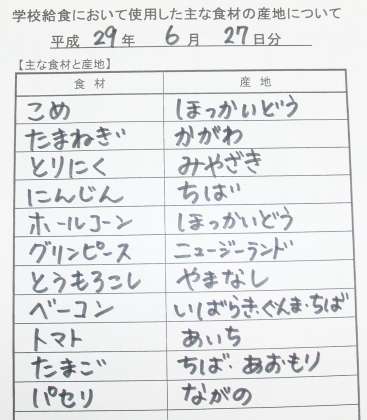 学校給食において使用した主な食材の産地について
平成 29 年 6 月 27 日分
【主な食材と産地】
食材 産地
こめ ほっかいどう
たまねぎ かがわ
とりにく みやざき
にんじん ちば
ホールコーン ほっかいどう
グリンピース ニュージーランド
とうもろこし やまなし
ベーコン いばらき・ぐんま・ちば
トマト あいち
たまご ちば・あおもり
パセリ ながの